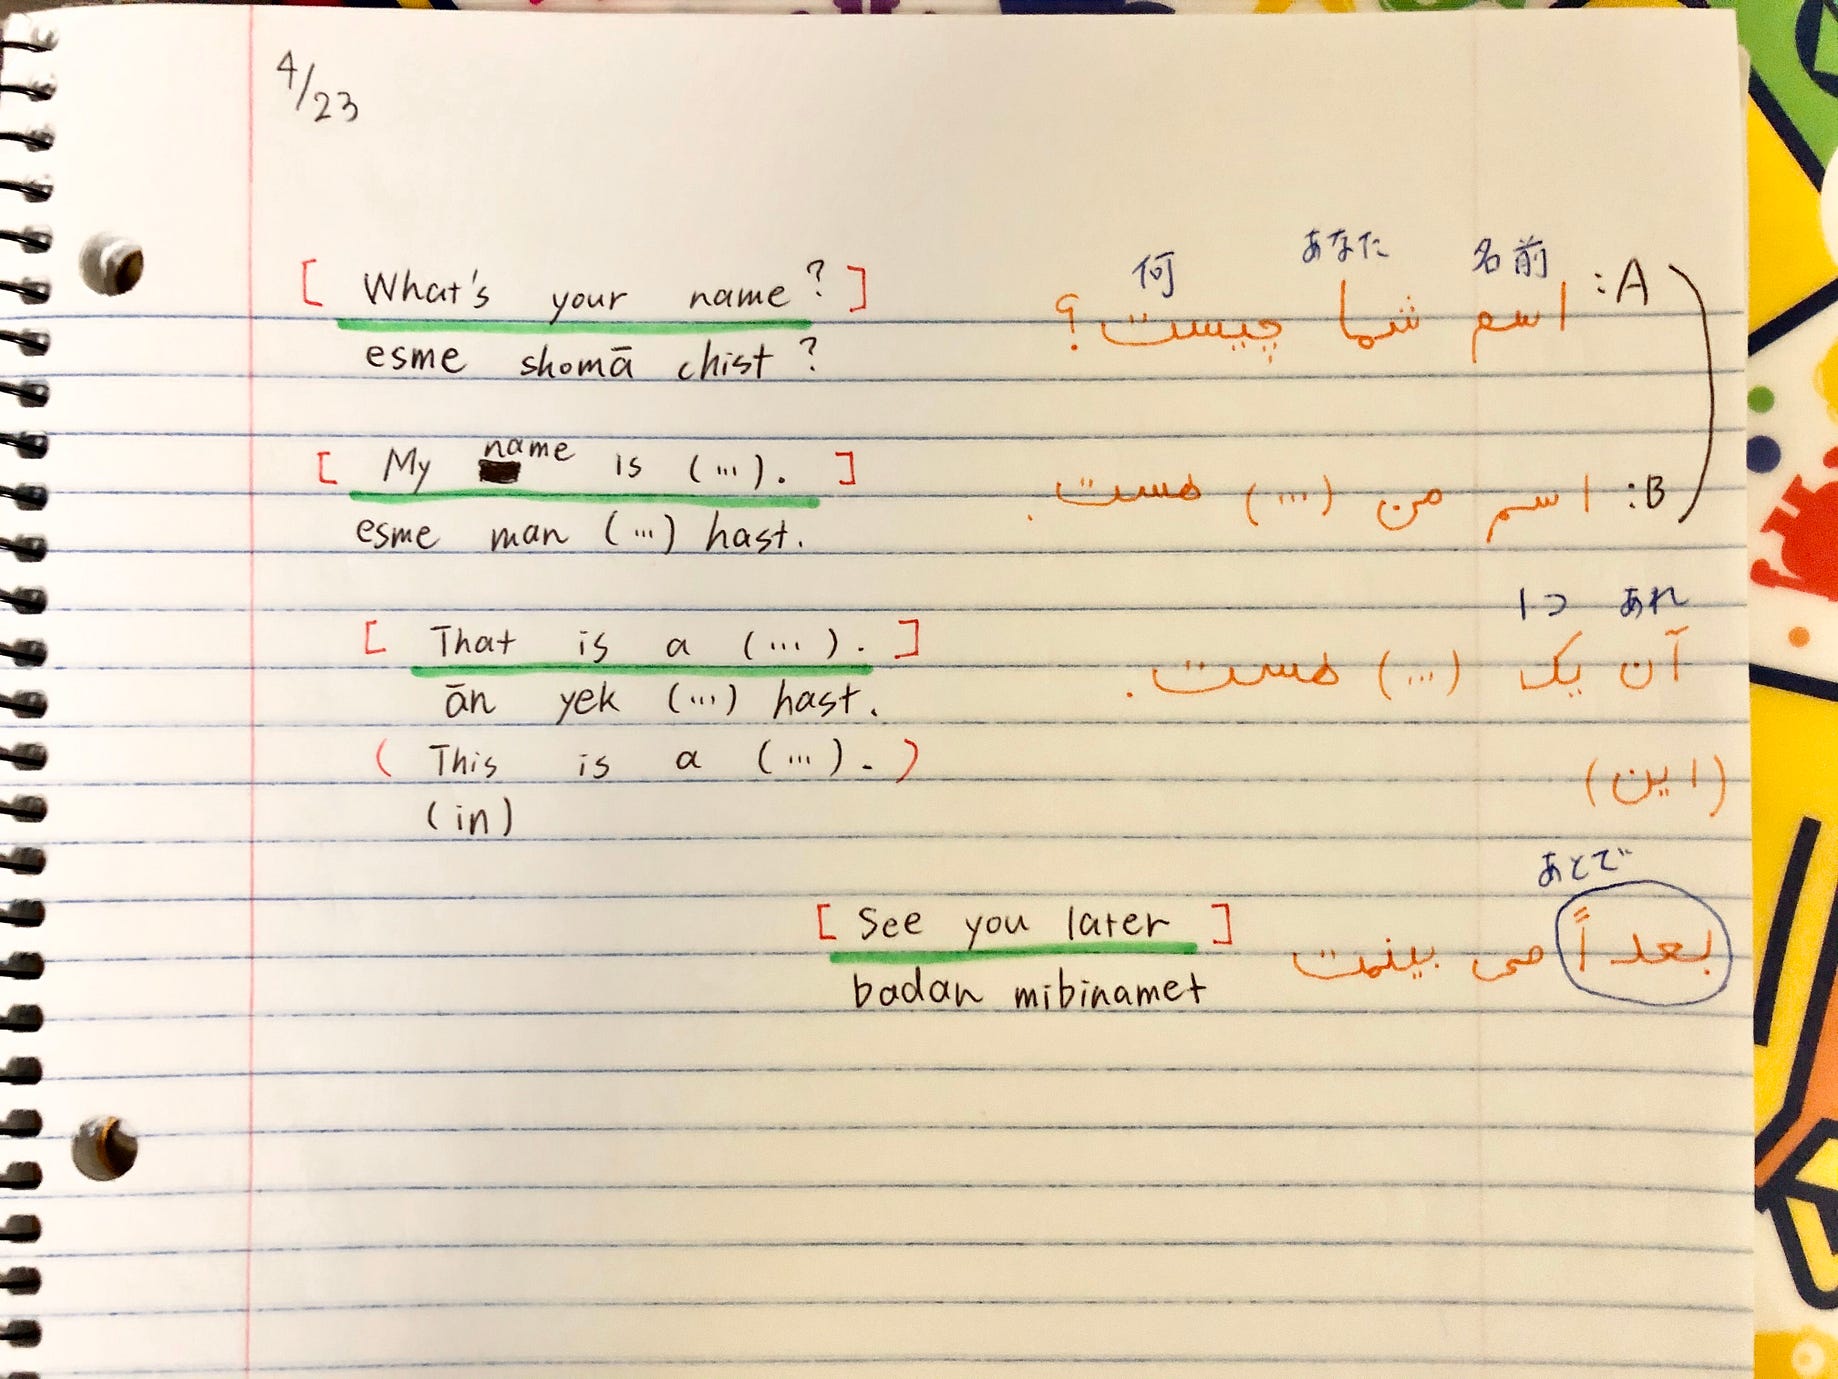 4/23
何 あなた 名前
[ What's your name? ] اسم شما چیست؟ :A
esme shomā chist?
[ My name is (...). ] اسم من (...) هست. :B
esme man (...) hast.
1つ あれ
[ That is a (...). ] آن یک (...) هست.
ān yek (...) hast.
( This is a (...). ) (این)
(in)
あとで
[ See you later ] بعداً می بینمت
badan mibinamet